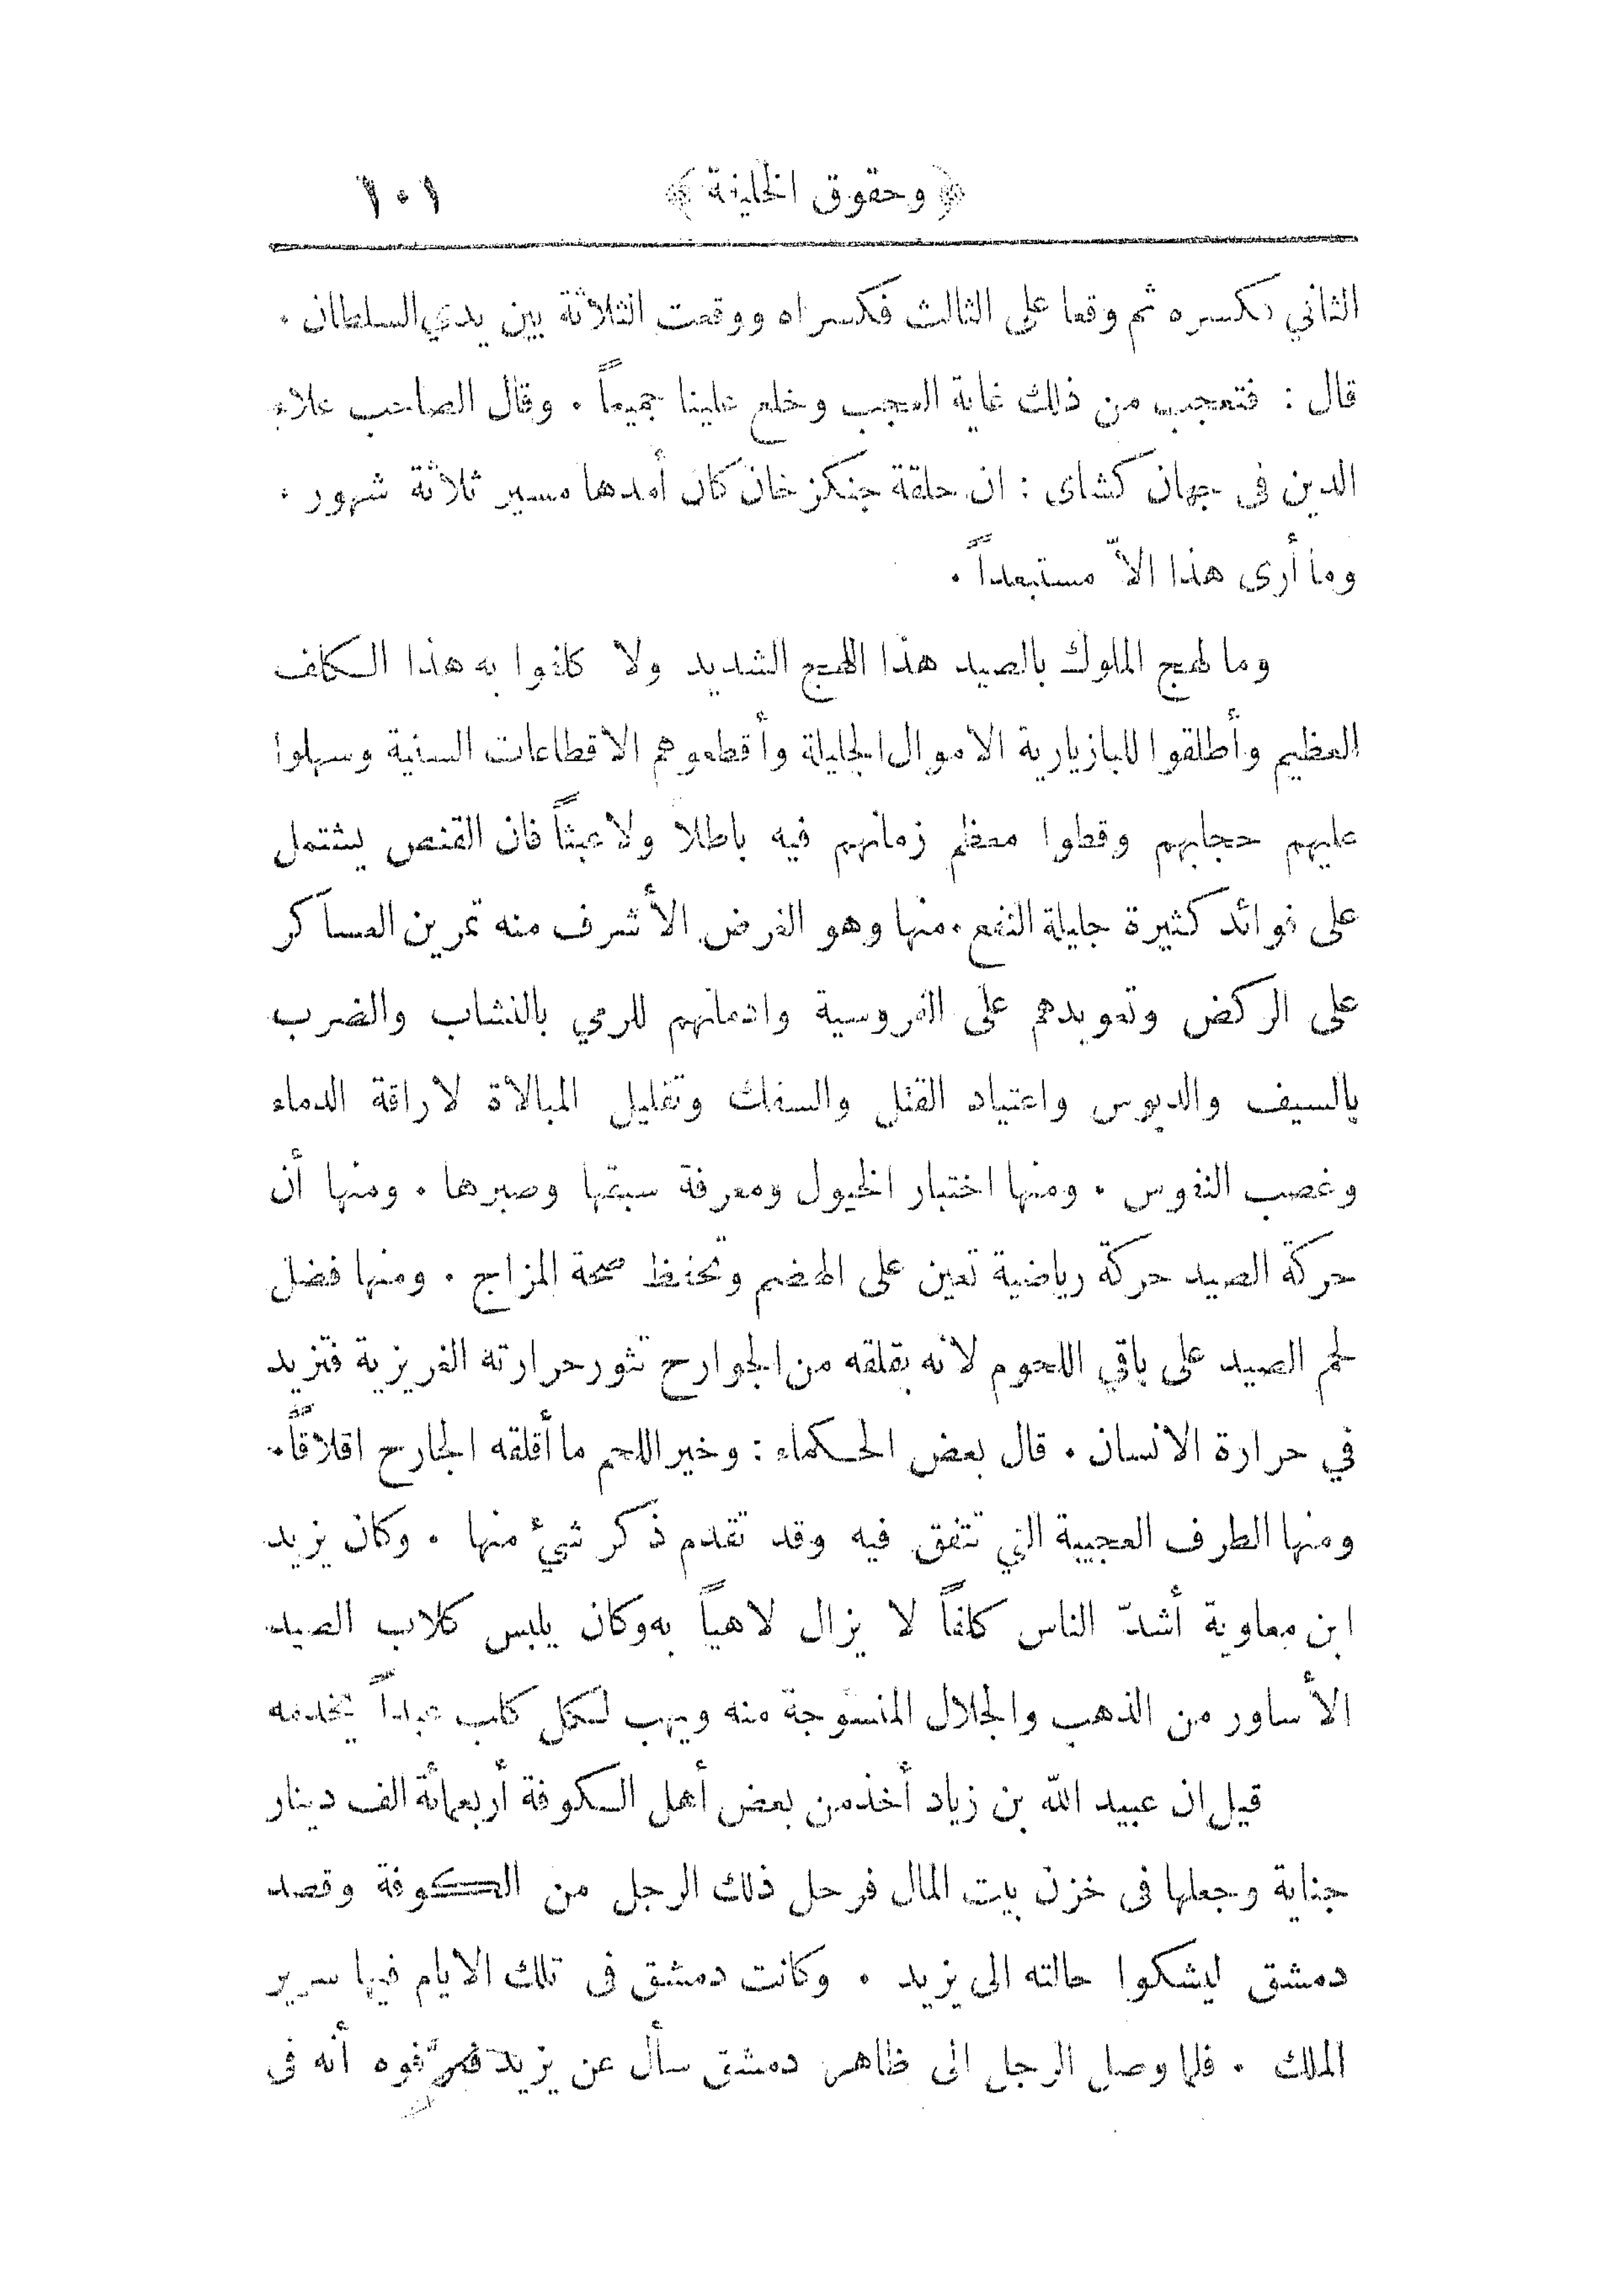 ﴿ وحقوق الخليفة ﴾ ١٠١
الثاني فكسره ثم وقعا على الثالث فكسراه ووقعت الثلاثة بين يدي السلطان .
قال : فتعجب من ذلك غاية العجب وخلع علينا جميعاً . وقال الصاحب علاء
الدين فى جهان كشاى : ان حلقة جنكز خان كان أمدها مسير ثلاثة شهور .
وما أرى هذا الاّ مستبعداً .
وما لهج الملوك بالصيد هذا اللهج الشديد ولا كلفوا به هذا الكلف
العظيم وأطلقوا للبازيارية الاموال الجليلة وأقطعوهم الاقطاعات السنية وسهلوا
عليهم حجابهم وقطوا معظم زمانهم فيه باطلا ولا عبثاً فان القنص يشتمل
على فوائد كثيرة جليلة النفع . منها وهو الغرض الأشرف منه تمرين العساكر
على الركض وتعويدهم على الفروسية وادمانهم للرمي بالنشاب والضرب
بالسيف والدبوس واعتياد القتل والسفك وتقليل المبالاة لاراقة الدماء
وغصب النفوس . ومنها اختبار الخيول ومعرفة سبقها وصبرها . ومنها أن
حركة الصيد حركة رياضية تعين على الهضم وتحفظ صحة المزاج . ومنها فضل
لحم الصيد على باقي اللحوم لانه بقلقه من الجوارح تثور حرارته الغريزية فتزيد
في حرارة الانسان . قال بعض الحكماء : وخير اللحم ما أقلقه الجارح اقلاقاً .
ومنها الطرف العجيبة التي تتفق فيه وقد تقدم ذكر شيء منها . وكان يزيد
ابن معاوية أشدّ الناس كلفاً لا يزال لاهياً به وكان يلبس كلاب الصيد
الأساور من الذهب والجلال المنسوجة منه ويهب لكل كلب عبداً يخدمه
قيل ان عبيد الله بن زياد أخذ من بعض أهل الكوفة أربعمائة الف دينار
جناية وجعلها فى خزن بيت المال فرحل ذلك الرجل من الكوفة وقصد
دمشق ليشكوا حالته الى يزيد . وكانت دمشق فى تلك الايام فيها سرير
الملك . فلما وصل الرجل الى ظاهر دمشق سأل عن يزيد فعرّفوه أنه فى